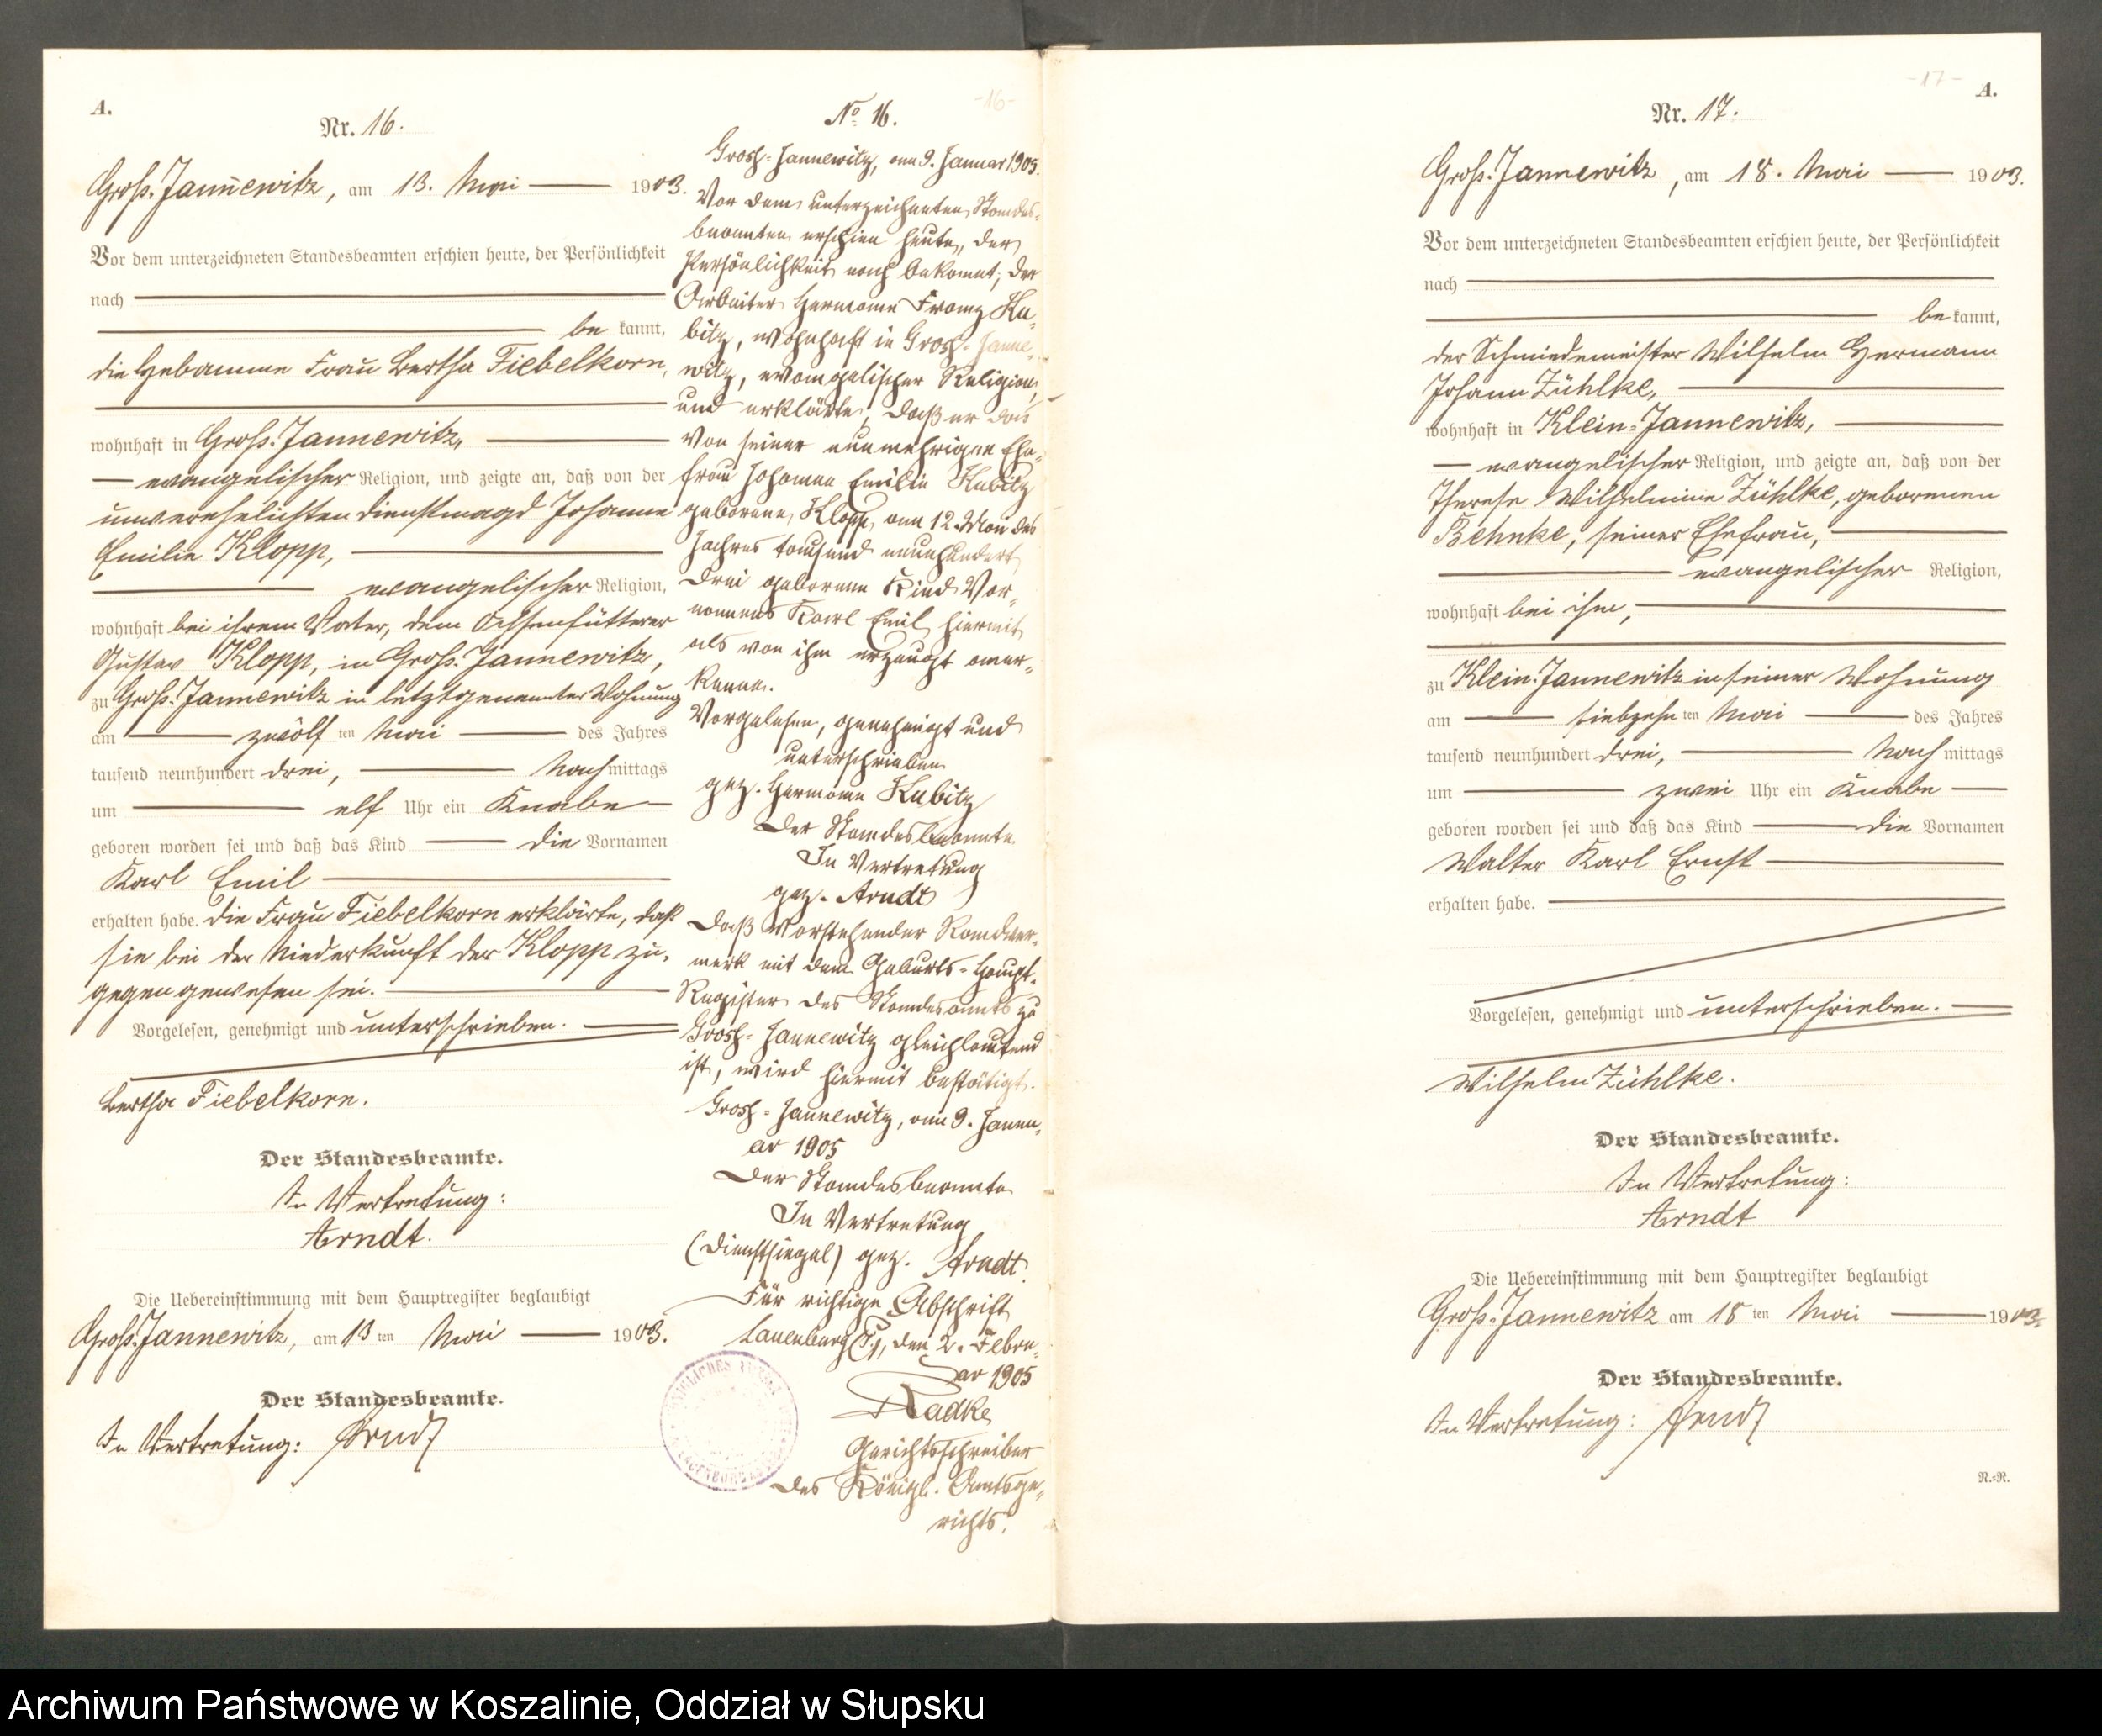 A.
Nr. 16.
Groß-Jannewitz, am 13. Mai 1903.
Vor dem unterzeichneten Standesbeamten erschien heute, der Persönlichkeit
nach
be kannt,
die Hebamme Frau Bertha Fiebelkorn,
wohnhaft in Groß-Jannewitz,
evangelischer Religion, und zeigte an, daß von der
unverehelichten Dienstmagd Johanne
Emilie Klopp,
evangelischer Religion,
wohnhaft bei ihrem Vater, dem Ochsenfütterer
Gustav Klopp, in Groß-Jannewitz,
zu Groß-Jannewitz in letztgenannter Wohnung
am zwölf ten Mai des Jahres
tausend neunhundert drei, Nach mittags
um elf Uhr ein Knabe
geboren worden sei und daß das Kind die Vornamen
Karl Emil
erhalten habe. Die Frau Fiebelkorn erklärte, daß
sie bei der Niederkunft der Klopp zu-
gegen gewesen sei.
Vorgelesen, genehmigt und unterschrieben.
Bertha Fiebelkorn.
Der Standesbeamte.
In Vertretung:
Arndt.
Die Uebereinstimmung mit dem Hauptregister beglaubigt
Groß-Jannewitz, am 13 ten Mai 1903.
Der Standesbeamte.
In Vertretung: Arndt
-16-
No 16.
Grosz-Jannewitz, am 9. Januar 1905.
Vor dem unterzeichneten Standes-
beamten erschien heute, der
Persönlichkeit nach bekannt, der
Arbeiter Hermann Franz Ku-
bitz, wohnhaft in Grosz-Janne-
witz, evangelischer Religion,
und erklärte, daß er das
von seiner nunmehrigen Ehe-
frau Johanna Emilie Kubitz
geborene Klopp, am 12. Mai des
Jahres tausend neunhundert
drei geborene Kind Vor-
namens Karl Emil hiermit
als von ihm erzeugt aner-
kenne.
Vorgelesen, genehmigt und
unterschrieben
gez. Hermann Kubitz
Der Standesbeamte
In Vertretung
gez. Arndt
Daß vorstehender Randver-
merk mit dem Geburts-Haupt-
Register des Standesamts zu
Grosz-Jannewitz gleichlautend
ist, wird hiermit bestätigt.
Grosz-Jannewitz, am 9. Janu-
ar 1905
Der Standesbeamte
In Vertretung
(Dienstsiegel) gez. Arndt.
Für richtige Abschrift
Lauenburg P., den 2. Febru-
ar 1905
Radke
Gerichtsschreiber
des Königl. Amtsge-
richts.
-17-
A.
Nr. 17.
Groß-Jannewitz, am 18. Mai 1903.
Vor dem unterzeichneten Standesbeamten erschien heute, der Persönlichkeit
nach
be kannt,
der Schmiedemeister Wilhelm Hermann
Johann Zühlke,
wohnhaft in Klein-Jannewitz,
evangelischer Religion, und zeigte an, daß von der
Therese Wilhelmine Zühlke, geborenen
Behnke, seiner Ehefrau,
evangelischer Religion,
wohnhaft bei ihm,
zu Klein-Jannewitz in seiner Wohnung
am siebzehn ten Mai des Jahres
tausend neunhundert drei, Nach mittags
um zwei Uhr ein Knabe
geboren worden sei und daß das Kind die Vornamen
Walter Karl Ernst
erhalten habe.
Vorgelesen, genehmigt und unterschrieben.
Wilhelm Zühlke.
Der Standesbeamte.
In Vertretung:
Arndt
Die Uebereinstimmung mit dem Hauptregister beglaubigt
Groß-Jannewitz am 18 ten Mai 1903.
Der Standesbeamte.
In Vertretung: Arndt
N.=R.
Archiwum Państwowe w Koszalinie, Oddział w Słupsku